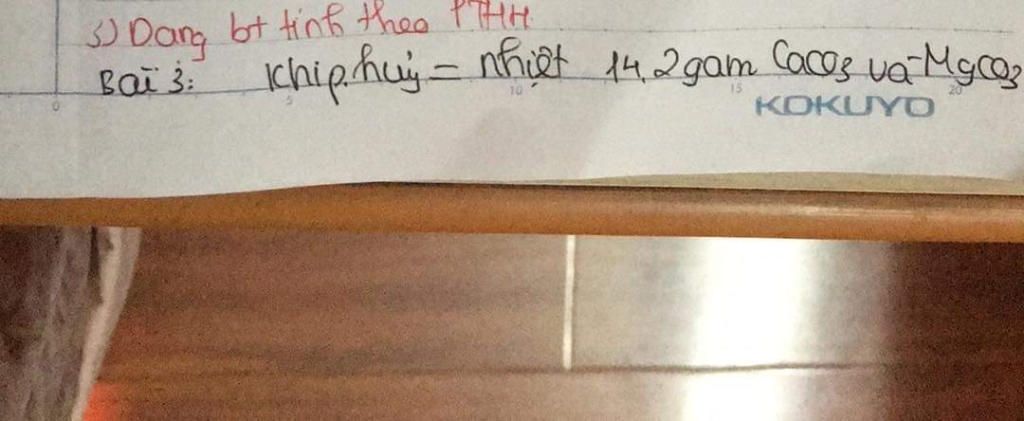 3) Dạng bt tính theo PTHH
Bài 3: Khi p.huỷ = nhiệt 14,2gam CaCO3 và MgCO3
0 5 10 15 20
KOKUYO